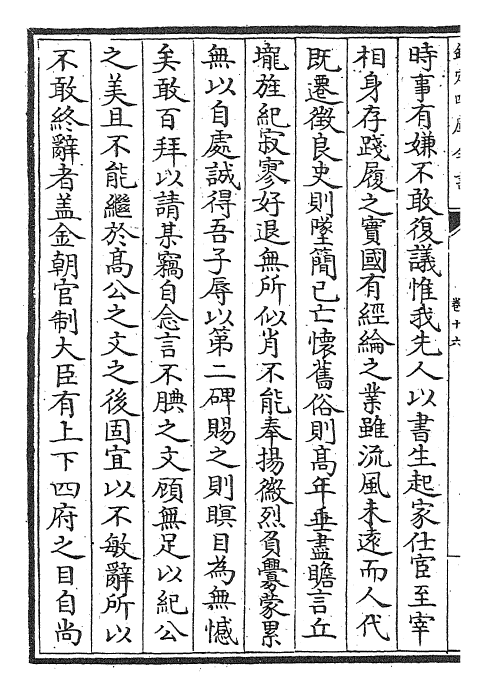 欽定四庫全書
卷十六
時事有嫌不敢復議惟我先人以書生起家仕宦至宰
相身存踐履之實國有經綸之業雖流風未逺而人代
既遷徵良史則墜簡已亡懷舊俗則髙年垂盡瞻言丘
壠旌紀寂寥好退無所似肖不能奉揚徽烈負釁蒙累
無以自處誠得吾子辱以第二碑賜之則瞑目為無憾
矣敢百拜以請某竊自念言不腆之文顧無足以紀公
之美且不能繼於髙公之文之後固宜以不敏辭所以
不敢終辭者盖金朝官制大臣有上下四府之目自尚